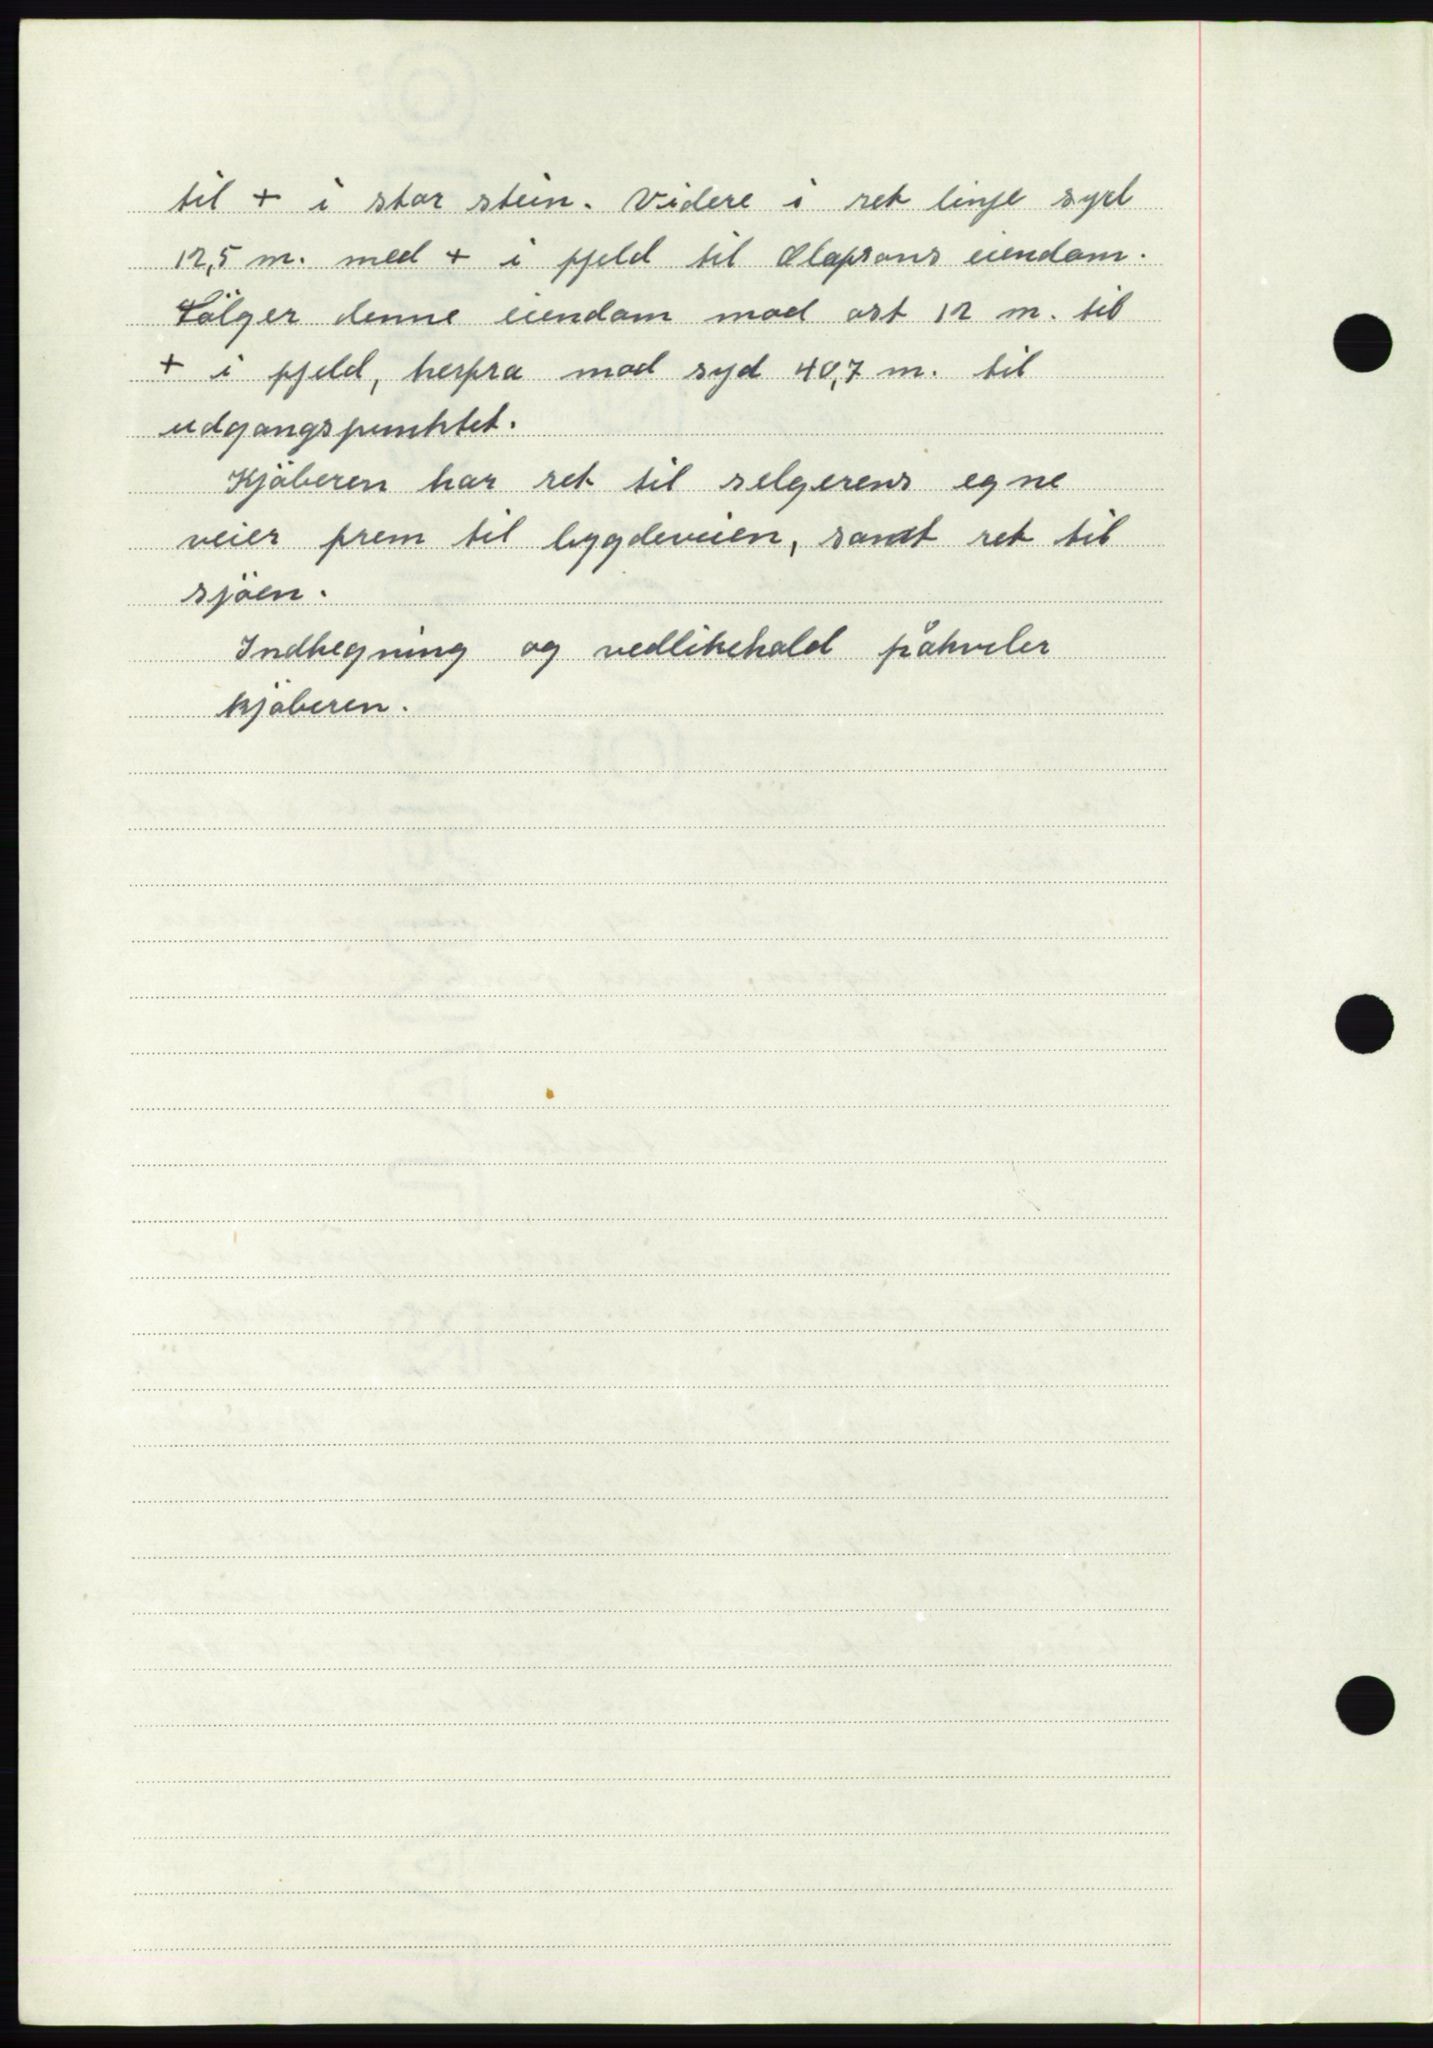 til + i stor stein. Videre i ret linje syd
12,5 m. med + i fjeld til Olafsons eiendom.
Følger denne eiendom mod ost 12 m. til
+ i fjeld, herfra mod syd 40,7 m. til
udgangspunktet.
Kjöberen har ret til selgerens egne
veier frem til bygdeveien, samt ret til
sjöen.
Indhegning og vedlikehold påhviler
kjöberen.